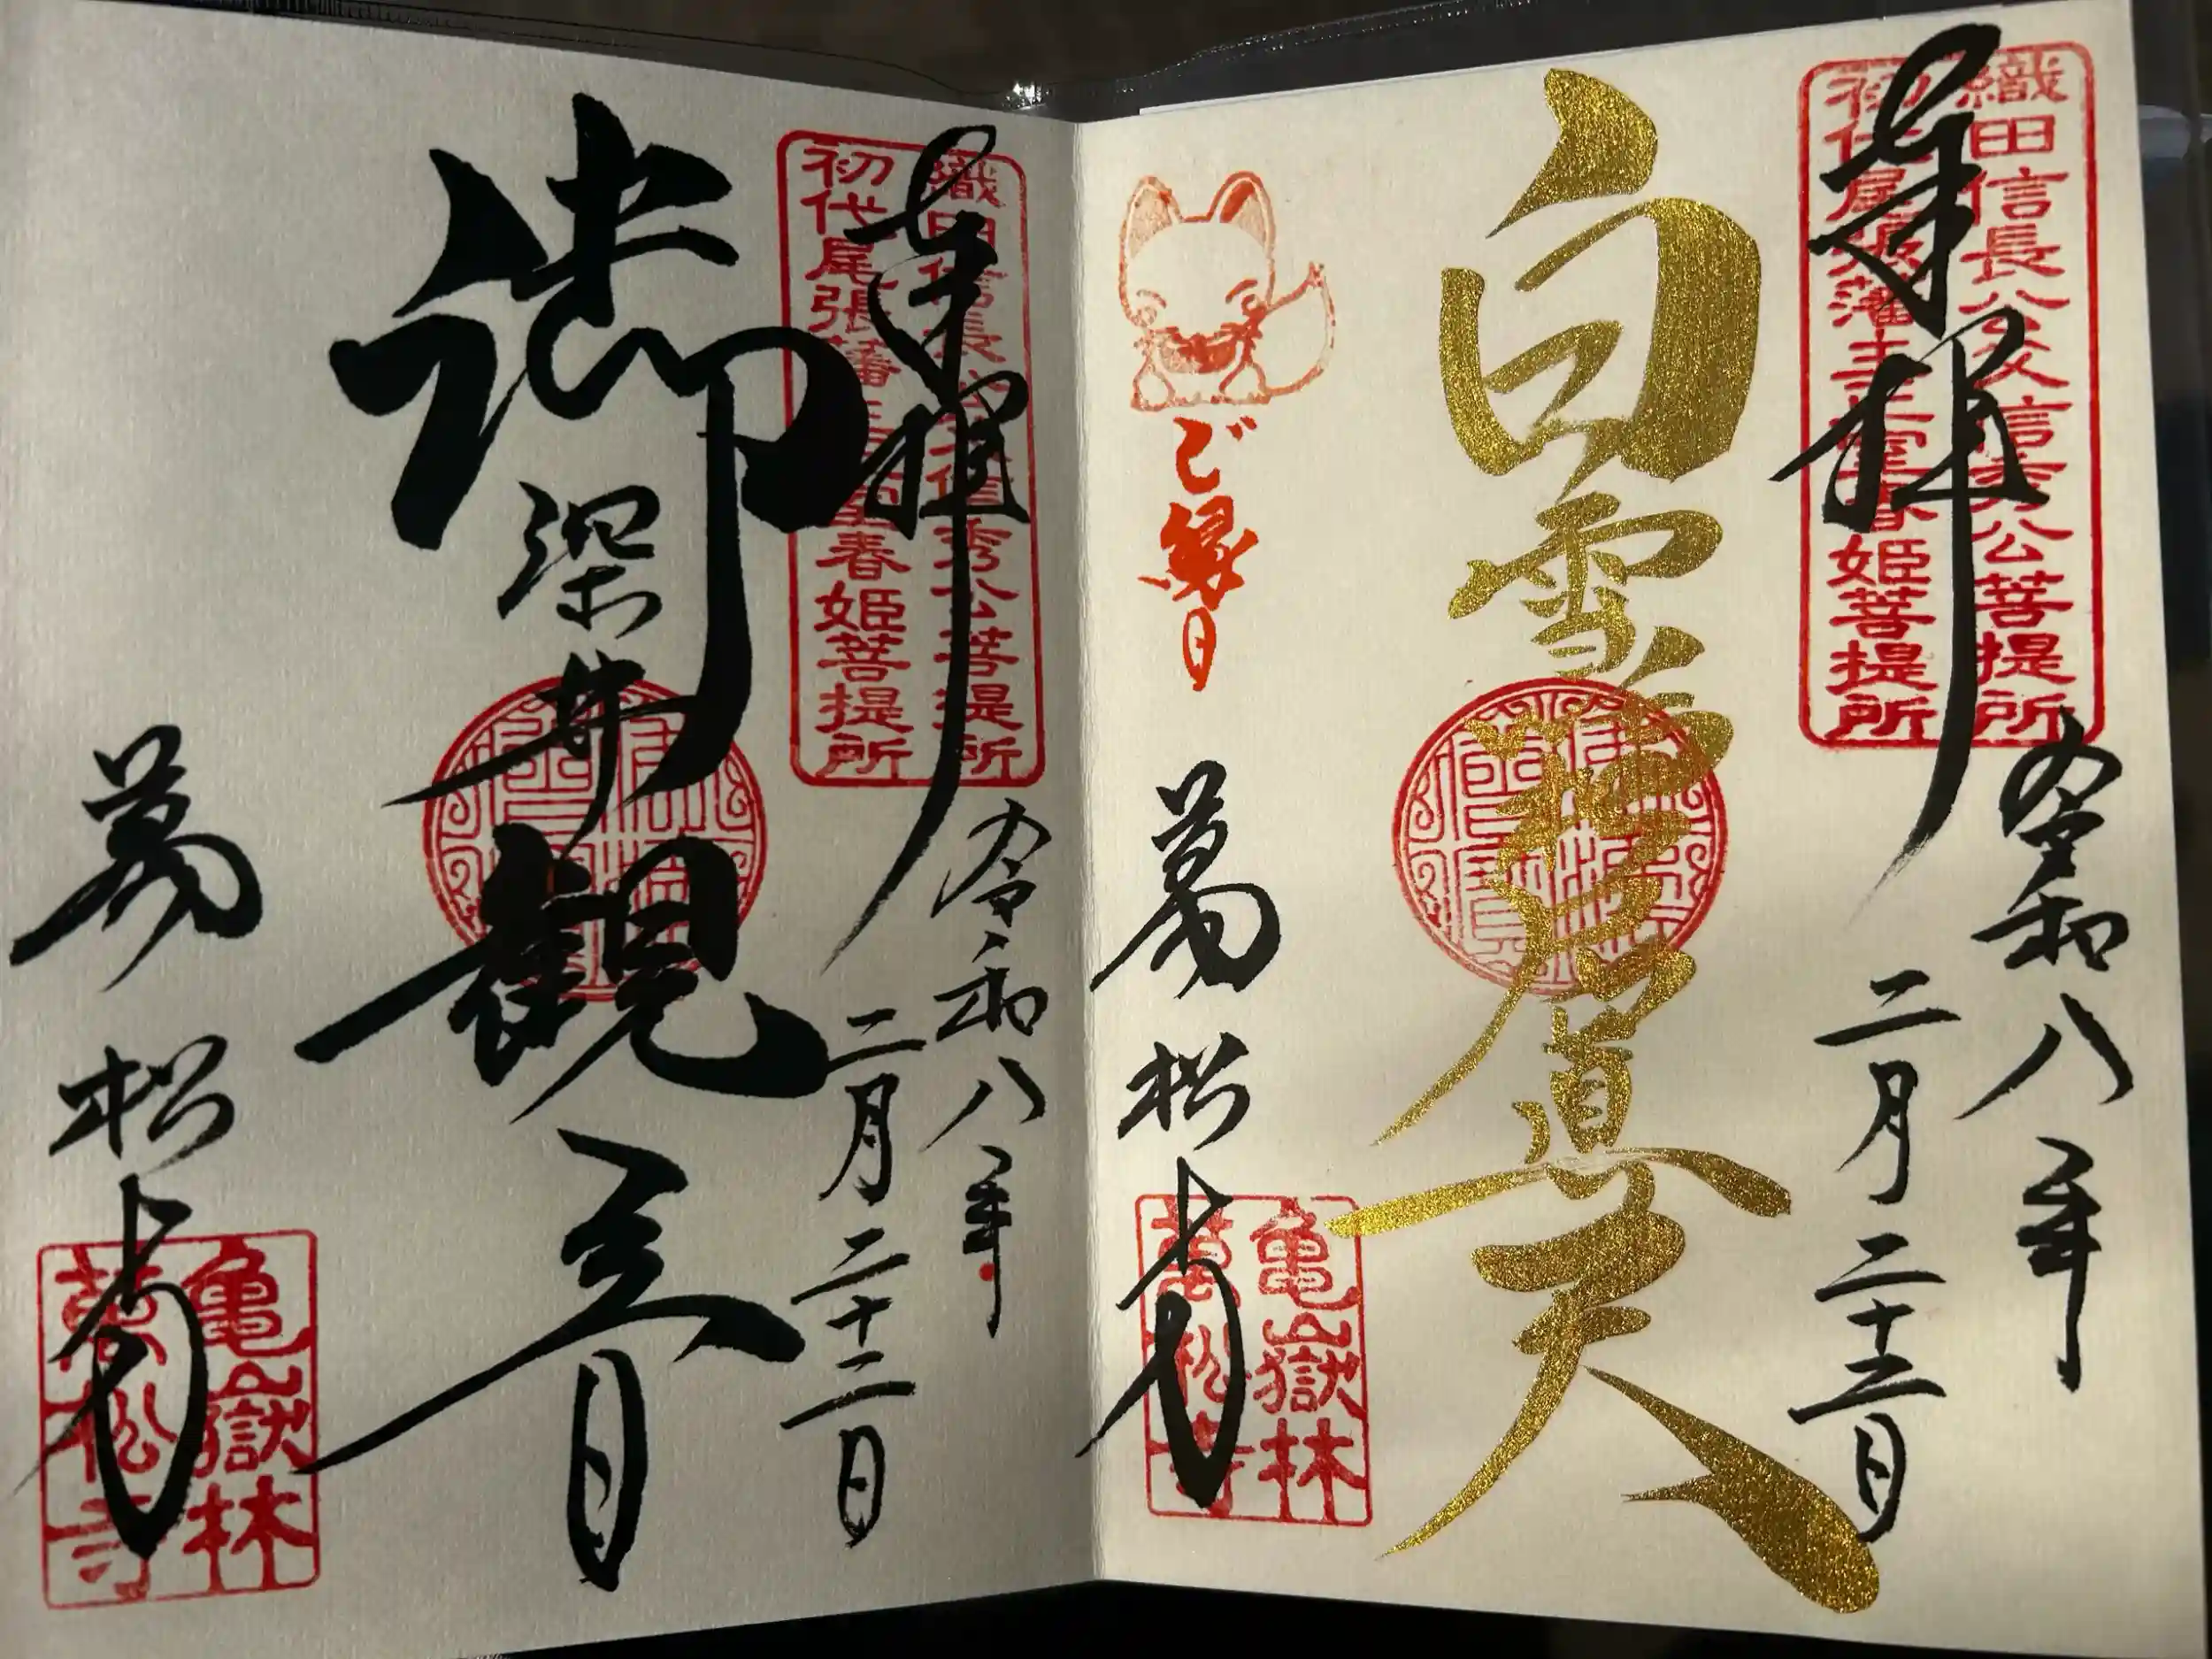 奉拝
織田信長公父信秀公菩提所
初代尾張藩主正室春姫菩提所
令和八年
二月二十二日
白雪稲荷
吒枳尼眞天
ご縁日
萬松寺
亀嶽林
萬松寺
奉拝
織田信長公父信秀公菩提所
初代尾張藩主正室春姫菩提所
令和八年
二月二十二日
御深井観音
萬松寺
亀嶽林
萬松寺